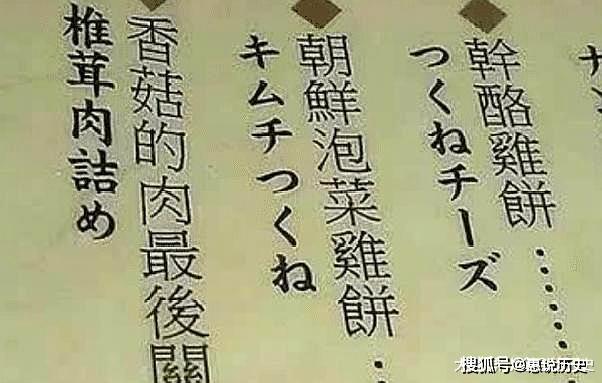 幹酪雞餅……
つくねチーズ
朝鮮泡菜雞餅…
キムチつくね
香菇的肉最後關
椎茸肉詰め
搜狐号@惠说历史